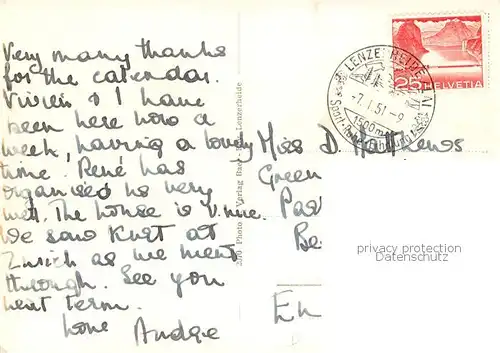 Very many thanks
for the calendar.
Vivien & I have
been here now a
week, having a lovely
time. René has
organised us very
well. The house is v. nice.
We saw Kurt at
Zurich as we went
through. See you
next term.
love Andrée
3570 Photo Verlag Rae Lenzerheide
HELVETIA
25
LENZERHEIDE
-7.I.51.-9
1500m
Miss D. Matthews
Green
Pas
Be
En
privacy protection
Datenschutz